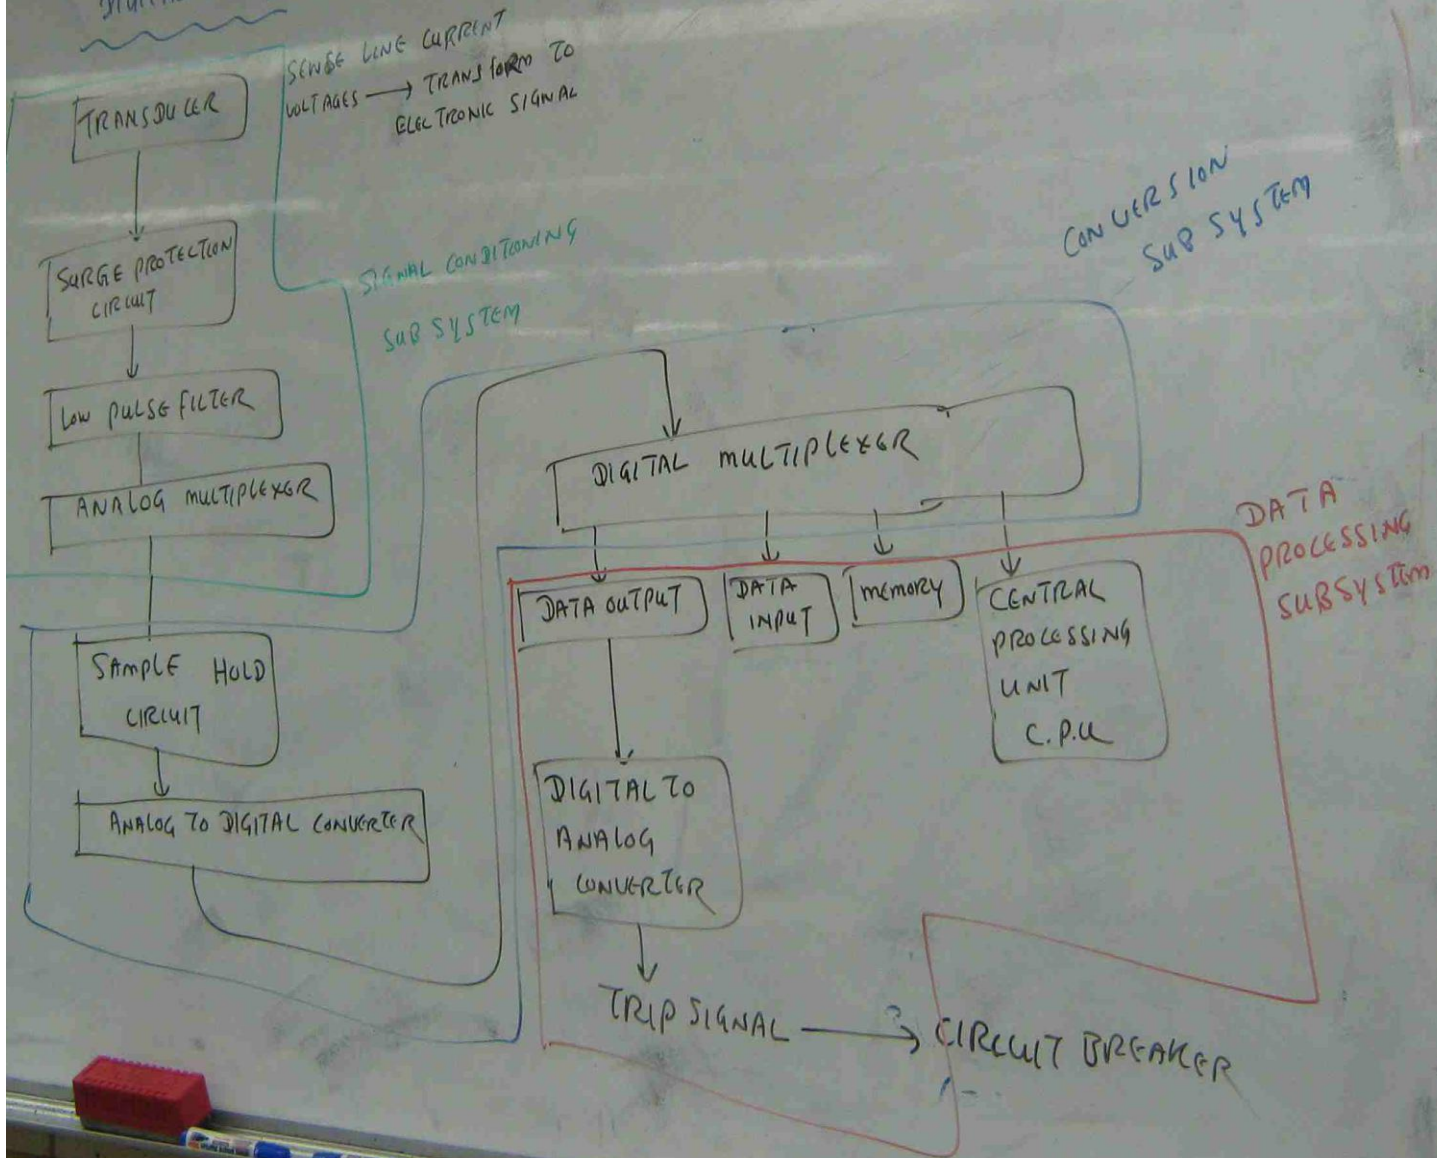 TRANSDUCER
SENSE LINE CURRENT
VOLTAGES → TRANSFORM TO
ELECTRONIC SIGNAL
SURGE PROTECTION
CIRCUIT
LOW PULSE FILTER
ANALOG MULTIPLEXER
SIGNAL CONDITIONING
SUB SYSTEM
SAMPLE HOLD
CIRCUIT
ANALOG TO DIGITAL CONVERTER
CONVERSION
SUB SYSTEM
DIGITAL MULTIPLEXER
DATA OUTPUT
DATA
INPUT
MEMORY
CENTRAL
PROCESSING
UNIT
C.P.U
DATA
PROCESSING
SUBSYSTEM
DIGITAL TO
ANALOG
CONVERTER
TRIP SIGNAL → CIRCUIT BREAKER